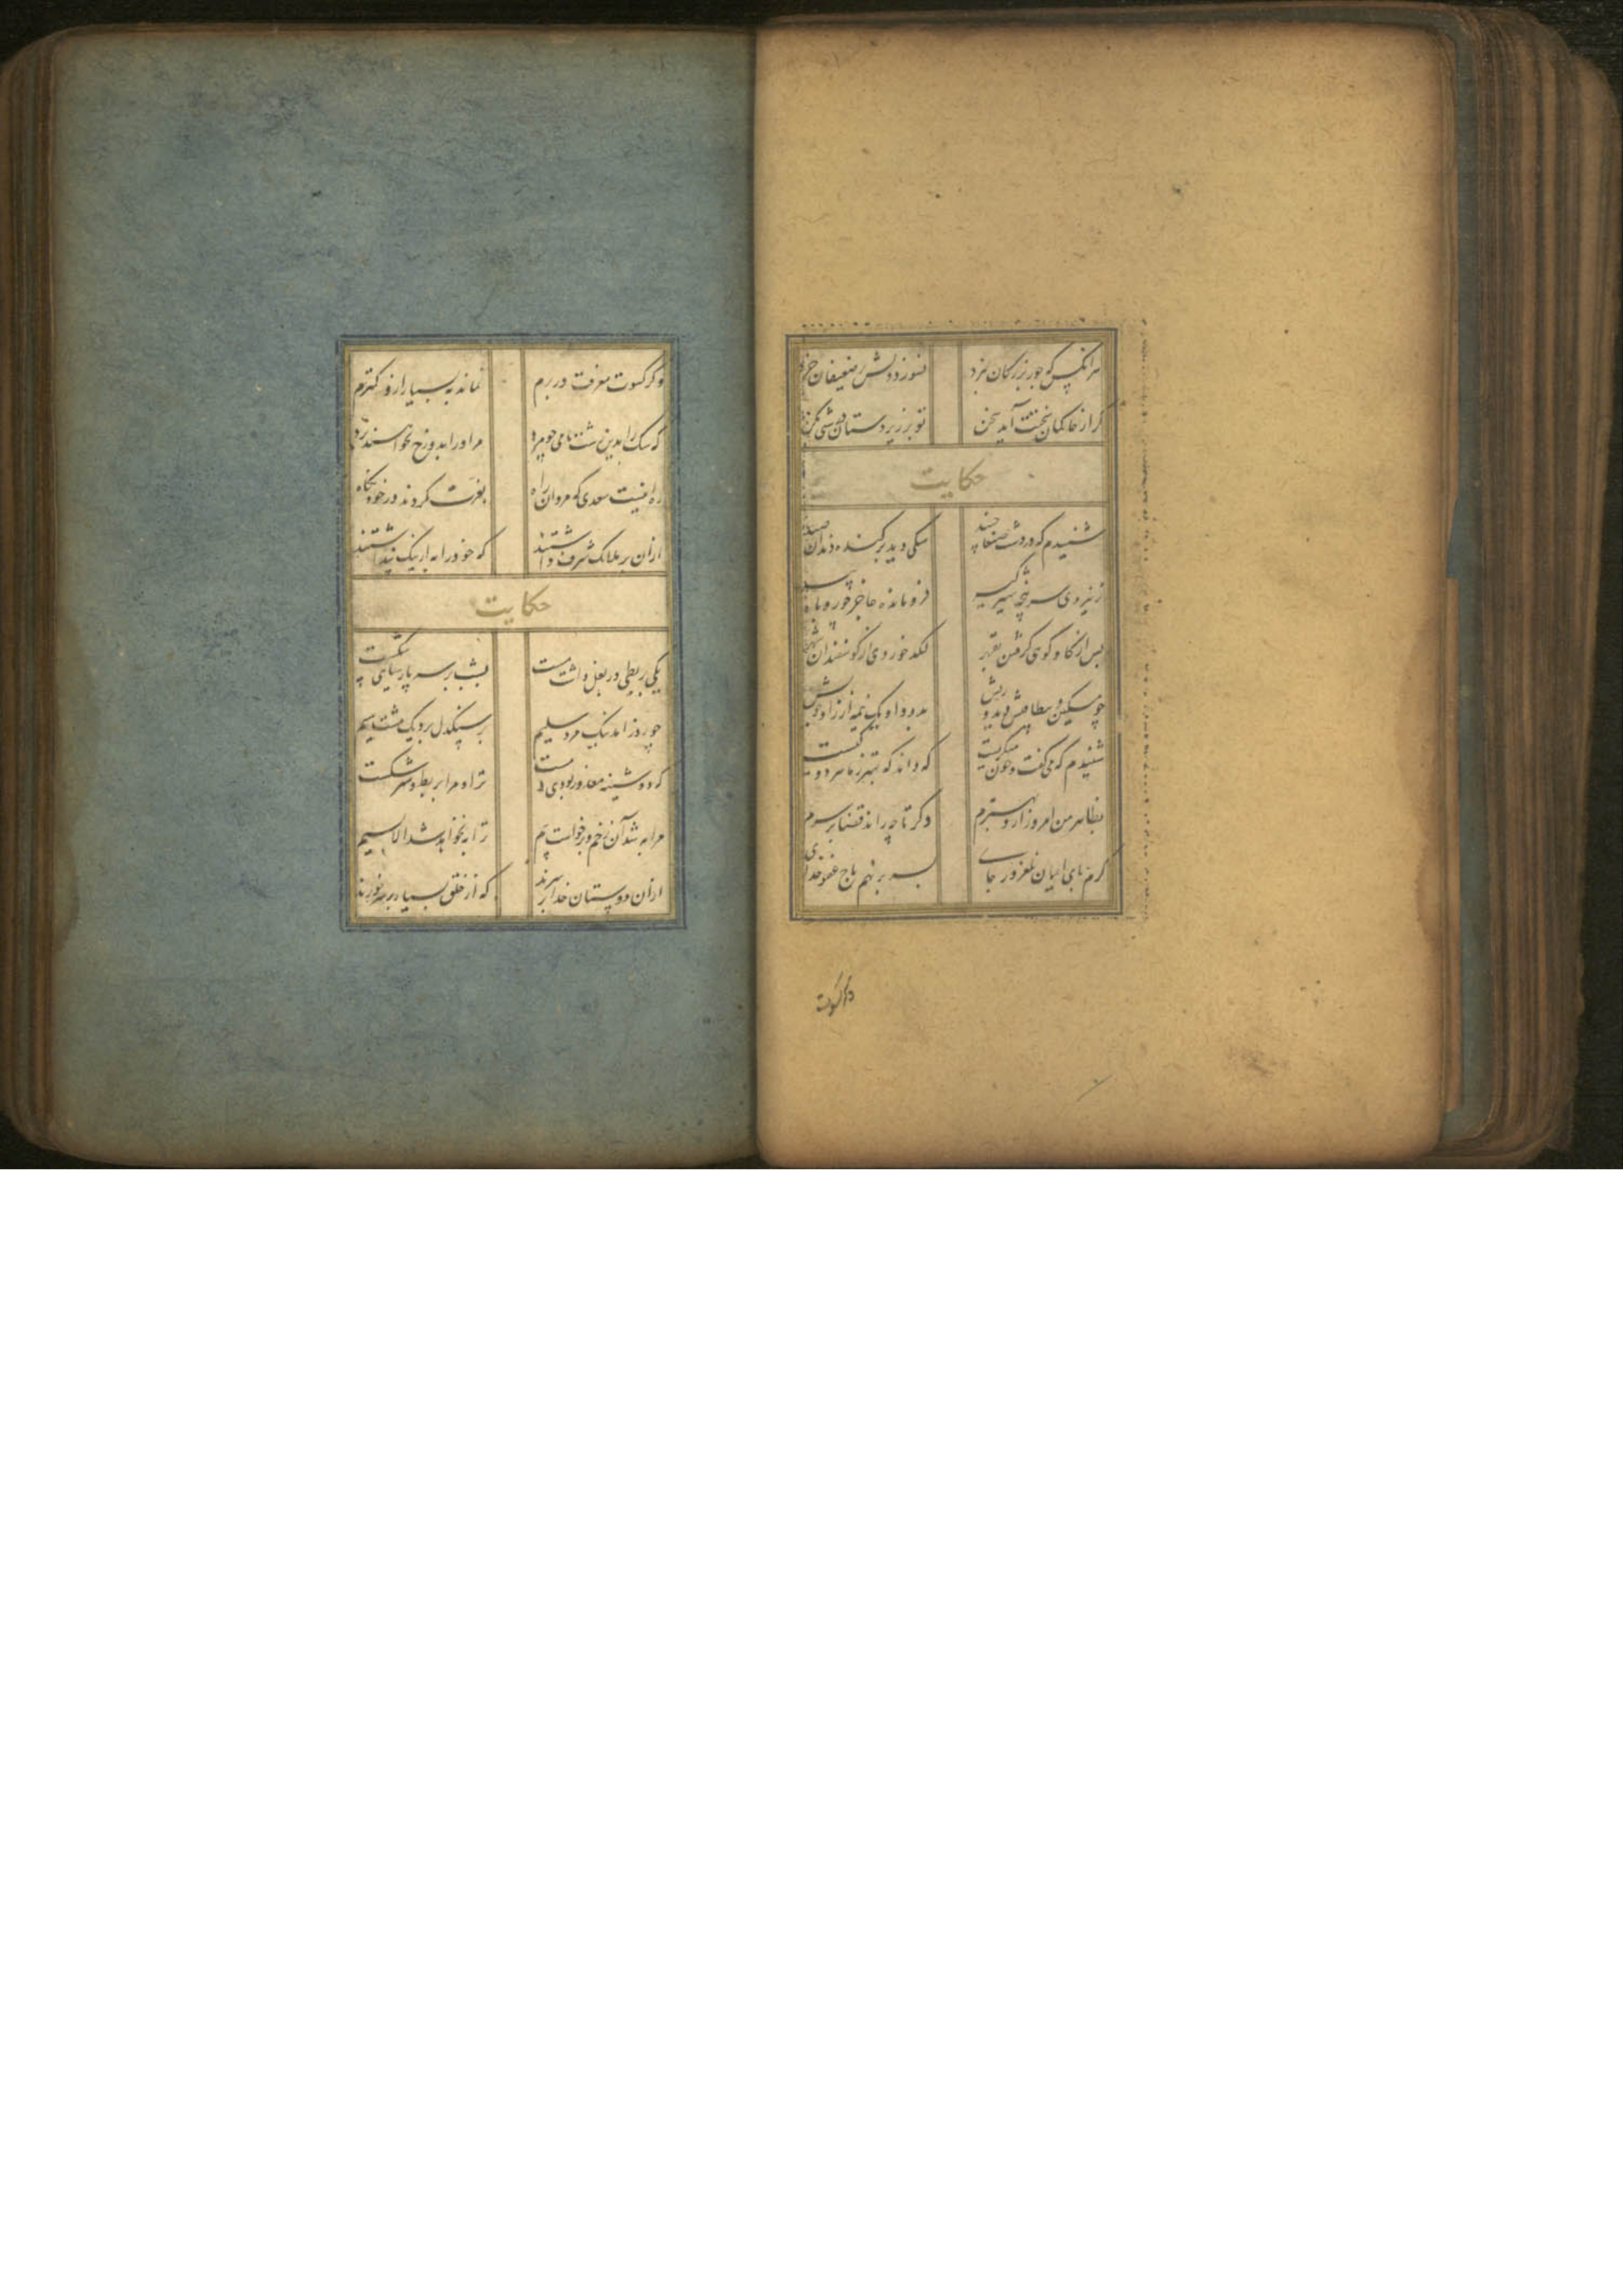 هر آنکس که جور بزرگان نبرد نسوزد دلش بر ضعیفان خرد
گر از حاکمان سختت آید سخن تو بر زیردستان درشتی مکن
حکایت
شنیدم که در دشت صنعا جنید سگی دید برکنده دندان صید
ز نیروی سرپنجه شیر گیر فرومانده عاجز چو روباه پیر
پس از گاو کوهی گرفتن بقهر لگد خوردی از گوسفندان شهر
چو مسکین و بیطاقتش دید و ریش بدو داد یک نیمه از زاد خویش
شنیدم که می گفت و خون میگریست که داند که بهتر ز ما هر دو کیست
بظاهر من امروز ازو بهترم دگر تا چه راند قضا بر سرم
گرم پای ایمان نلغزد ز جای بسر بر نهم تاج عفو خدای
وگر کسوت
وگر کسوت معرفت در برم نماند به بسیار ازو کمترم
که سگ را بدین زشت نامی چو مرد مر او را بدوزخ نخواهند برد
ره اینست سعدی که مردان راه بعزت نکردند در خود نگاه
ازان بر ملائک شرف داشتند که خود را به از سگ نپنداشتند
حکایت
یکی بربطی در بغل داشت مست بشب بر سر پارسایی شکست
چو روز آمد آن نیک مرد سلیم بر سنگدل برد یک مشت سیم
که دوشینه معذور بودی و مست ترا و مرا بربط و سر شکست
مرا به شد آن زخم و برخاست بیم ترا به نخواهد شد الا بسیم
ازان دوستان خدا بر سرند که از خلق بسیار بر سر خورند